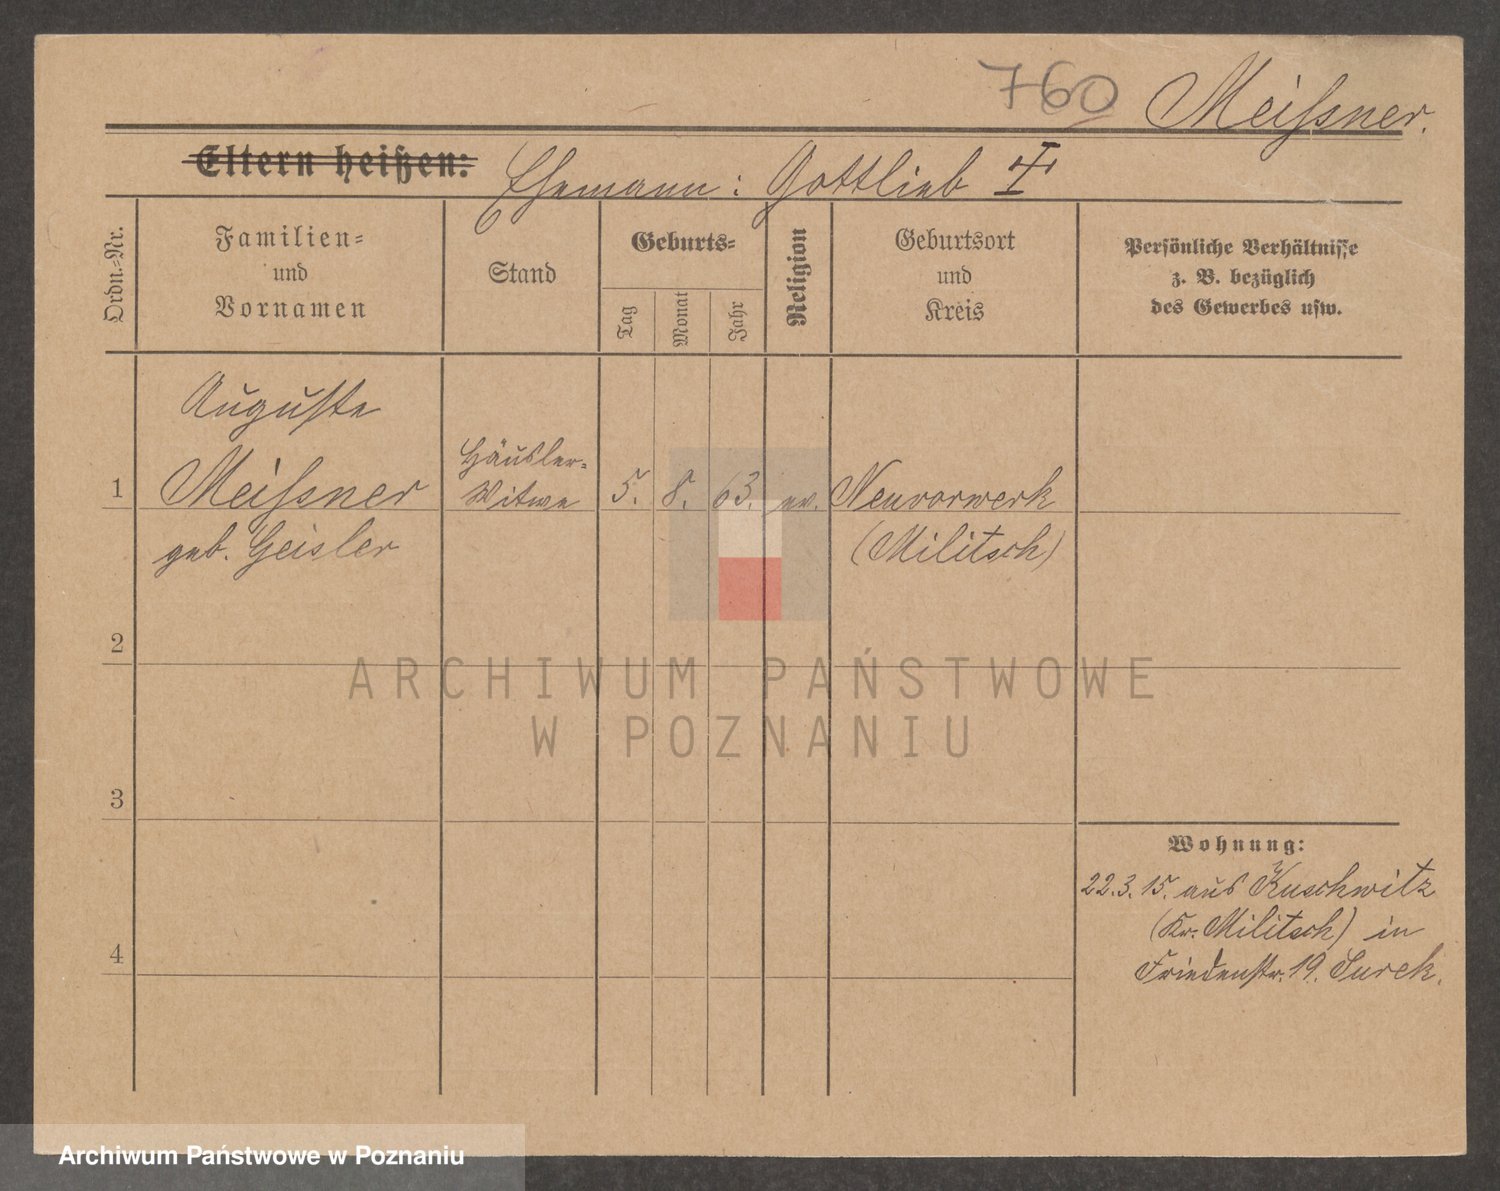 760 Meissner.
Eltern heißen: Ehemann: Gottlieb
Ordn.-Nr.
Familien-
und
Vornamen
Stand
Geburts-
Tag
Monat
Jahr
Religion
Geburtsort
und
Kreis
Persönliche Verhältnisse
z. B. bezüglich
des Gewerbes usw.
Auguste
Häusler-
1 Meissner Witwe 5. 8. 63. ev. Neuvorwerk
geb. Geisler (Militsch)
2
ARCHIWUM PAŃSTWOWE
W POZNANIU
3
Wohnung:
22.3.15. aus Kuschwitz
(Kr. Militsch) in
4
Friedenstr. 19. Turek.
Archiwum Państwowe w Poznaniu